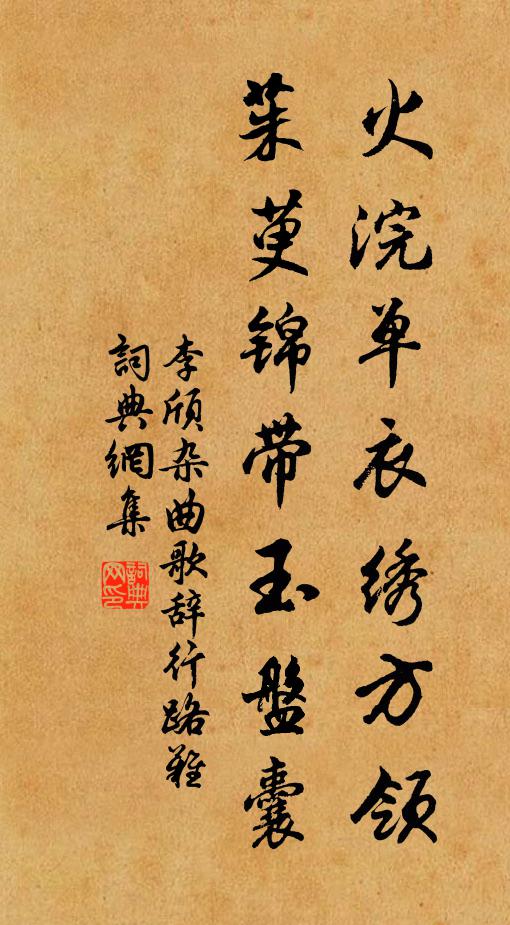 火浣单衣绣方领
茱萸锦带玉盤囊
李颀杂曲歌辞行路难
詞典網集
詞典网印